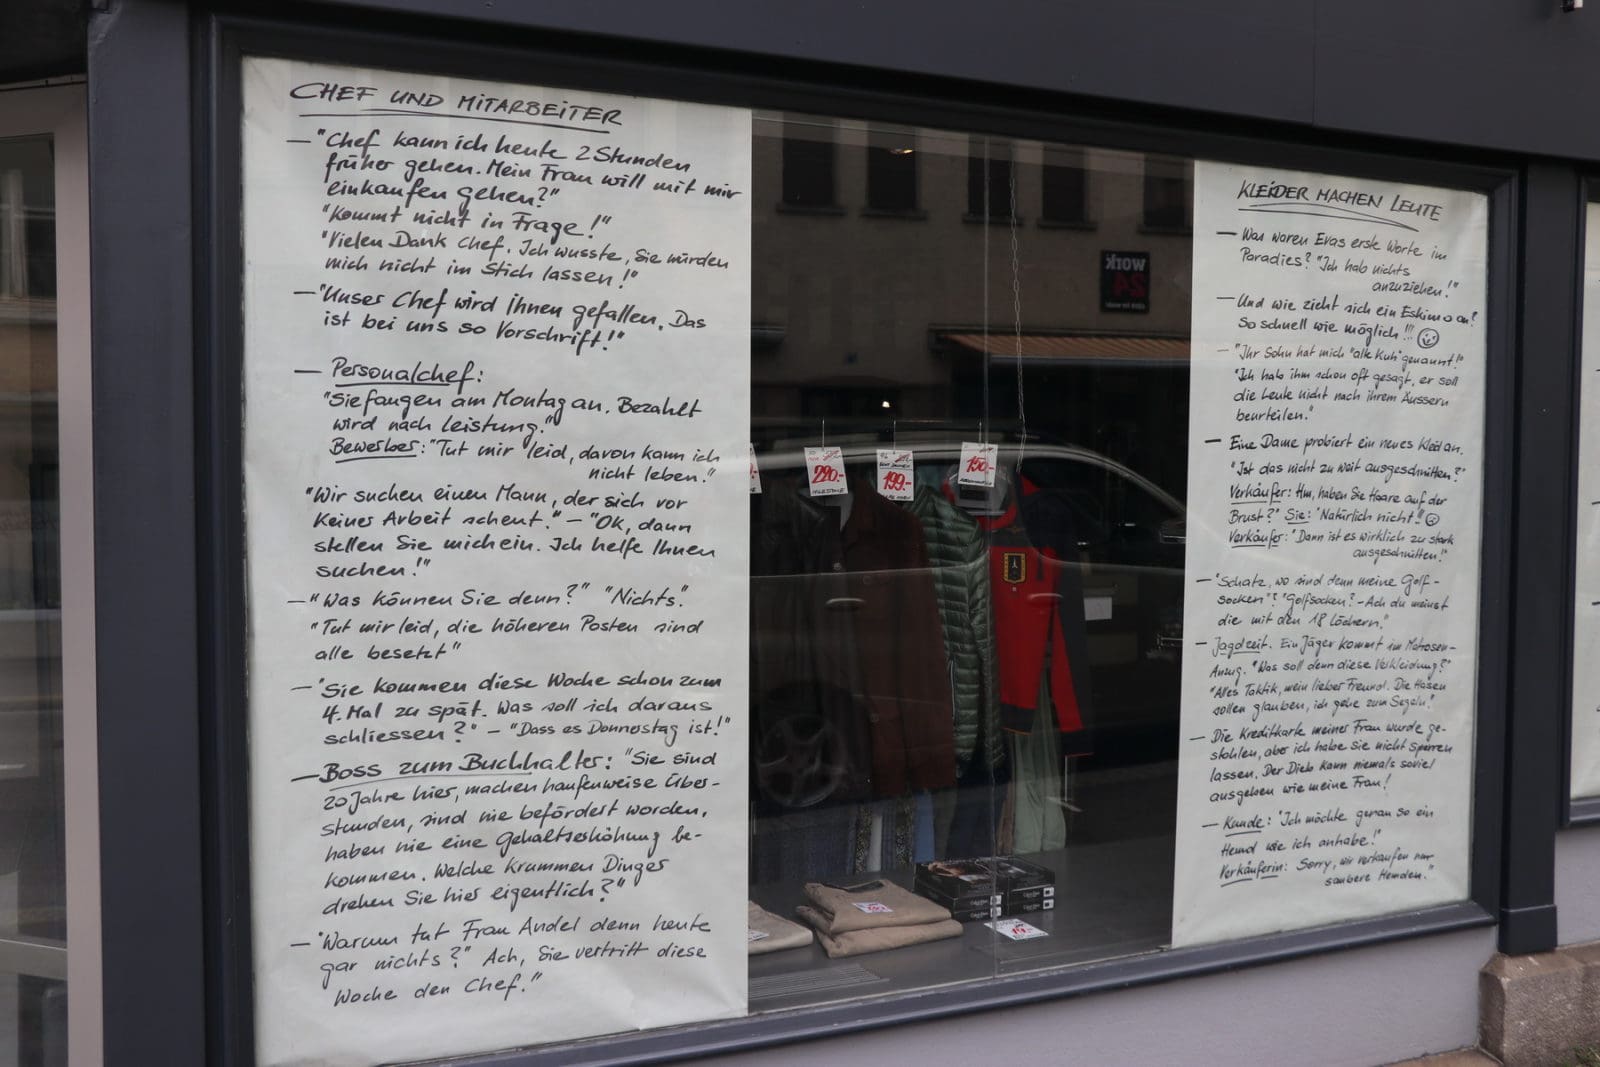 CHEF UND MITARBEITER
— "Chef kann ich heute 2 Stunden
früher gehen. Mein Frau will mit mir
einkaufen gehen?"
"Kommt nicht in Frage!"
"Vielen Dank Chef. Ich wusste, Sie würden
mich nicht im Stich lassen!"
— "Unser Chef wird Ihnen gefallen. Das
ist bei uns so Vorschrift!"
— Personalchef:
"Sie fangen am Montag an. Bezahlt
wird nach Leistung."
Bewerber: "Tut mir leid, davon kann ich
nicht leben."
"Wir suchen einen Mann, der sich vor
keiner Arbeit scheut." — "OK, dann
stellen Sie mich ein. Ich helfe Ihnen
suchen!"
— "Was können Sie denn?" "Nichts".
"Tut mir leid, die höheren Posten sind
alle besetzt"
— "Sie kommen diese Woche schon zum
4. Mal zu spät. Was soll ich daraus
schliessen?" — "Dass es Donnerstag ist!"
— Boss zum Buchhalter: "Sie sind
20 Jahre hier, machen haufenweise Über-
stunden, sind nie befördert worden,
haben nie eine Gehaltserhöhung be-
kommen. Welche krummen Dinger
drehen Sie hier eigentlich?"
— "Warum tut Frau Andel denn heute
gar nichts?" Ach, Sie vertritt diese
Woche den Chef."
WORK
24
220.-
199.-
150.-
19.-
KLEIDER MACHEN LEUTE
— Was waren Evas erste Worte im
Paradies? "Ich hab nichts
anzuziehen!"
— Und wie zieht sich ein Eskimo an?
So schnell wie möglich!!!
— "Ihr Sohn hat mich "alte Kuh" genannt!"
"Ich hab ihm schon oft gesagt, er soll
die Leute nicht nach ihrem Äussern
beurteilen."
— Eine Dame probiert ein neues Kleid an.
"Ist das nicht zu weit ausgeschnitten?"
Verkäufer: Hm, haben Sie Haare auf der
Brust?" Sie: "Natürlich nicht!!
Verkäufer: "Dann ist es wirklich zu stark
ausgeschnitten!"
— "Schatz, wo sind denn meine Golf-
socken"? "Golfsocken? - Ach du meinst
die mit den 18 Löchern."
— Jagdzeit. Ein Jäger kommt im Matrosen-
Anzug. "Was soll denn diese Verkleidung?"
"Alles Taktik, mein lieber Freund. Die Hasen
sollen glauben, ich gehe zum Segeln!"
— Die Kreditkarte meiner Frau wurde ge-
stohlen, aber ich habe sie nicht sperren
lassen. Der Dieb kann niemals soviel
ausgeben wie meine Frau!
— Kunde: "Ich möchte genau so ein
Hemd wie ich anhabe!"
Verkäuferin: Sorry, wir verkaufen nur
saubere Hemden."